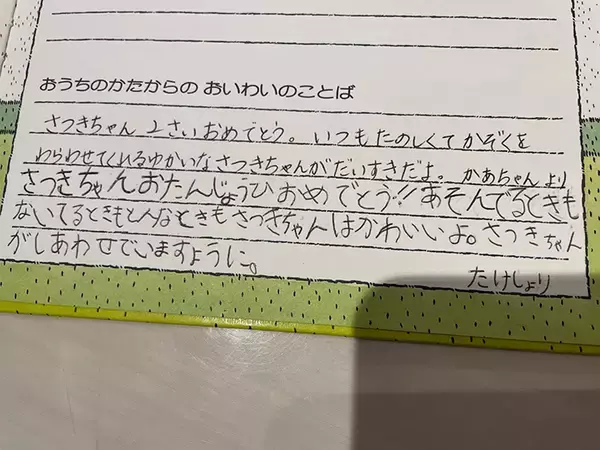 おうちのかたからの おいわいのことば
さつきちゃん 2さいおめでとう。いつもたのしくてかぞくを
わらわせてくれるゆかいなさつきちゃんがだいすきだよ。かあちゃんより
さつきちゃんおたんじょうびおめでとう!!あそんでるときも
ないてるときもどんなときもさつきちゃんはかわいいよ。さつきちゃん
がしあわせでいますように。
たけしより